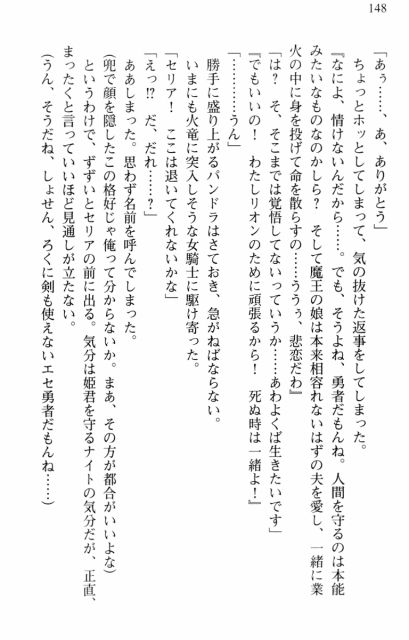 148
「あぅ……、あ、ありがとう」
ちょっとホッとしてしまって、気の抜けた返事をしてしまった。
『なによ、情けないんだから……。でも、そうよね、勇者だもんね。人間を守るのは本能
みたいなものなのかしら？　そして魔王の娘は本来相容れないはずの夫を愛し、一緒に業
火の中に身を投げて命を散らすの……ううぅ、悲恋だわ』
「は？　そ、そこまでは覚悟してないっていうか……あわよくば生きたいです」
『でもいいの！　わたしリオンのために頑張るから！　死ぬ時は一緒よ！』
「…………うん」
勝手に盛り上がるパンドラはさておき、急がねばならない。
いまにも火竜に突入しそうな女騎士に駆け寄った。
「セリア！　ここは退いてくれないかな」
「えっ!?　だ、だれ……？」
ああしまった。思わず名前を呼んでしまった。
(兜で顔を隠したこの格好じゃ俺って分からないか。まあ、その方が都合がいいよな)
というわけで、ずずいとセリアの前に出る。気分は姫君を守るナイトの気分だが、正直、
まったくと言っていいほど見通しが立たない。
(うん、そうだね、しょせん、ろくに剣も使えないエセ勇者だもんね……)